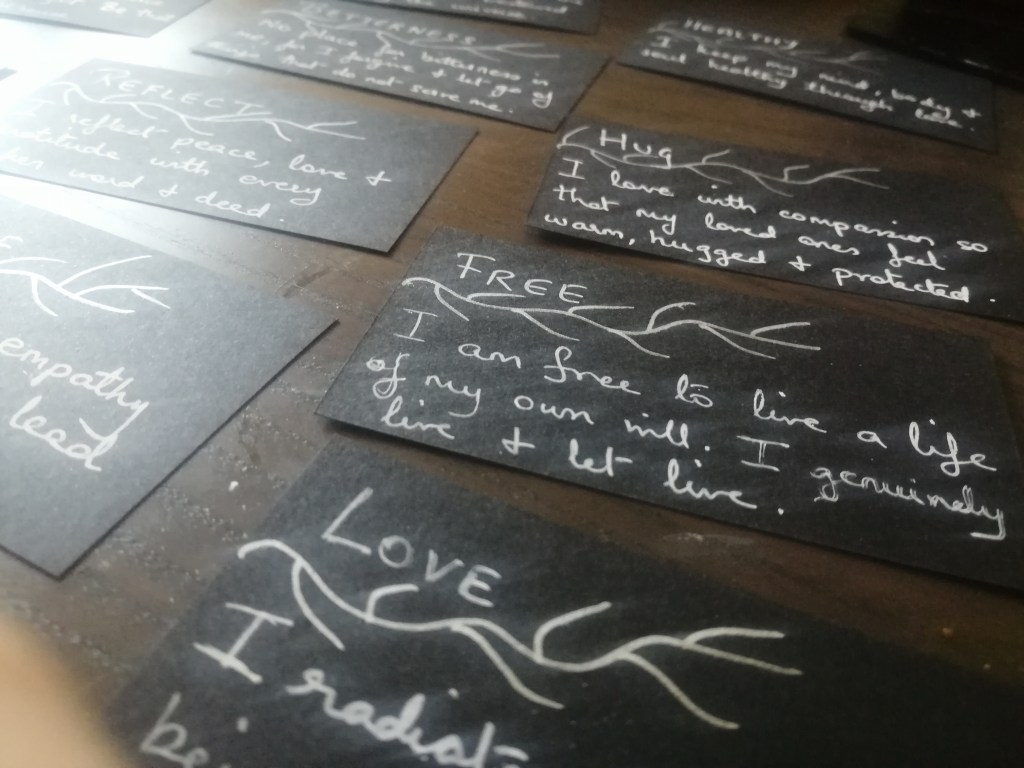 BITTERNESS
No place for bitterness in
me, for I forgive & let go of
that do not serve me.
HEALTHY
I keep my mind, body &
soul healthy through
REFLECT
I reflect peace, love &
with every
word & deed.
HUG
I love with compassion so
that my loved ones feel
warm, hugged & protected.
E
empathy
lead
FREE
I am free to live a life
of my own will. I genuinely
live & let live.
LOVE
I radiat
be